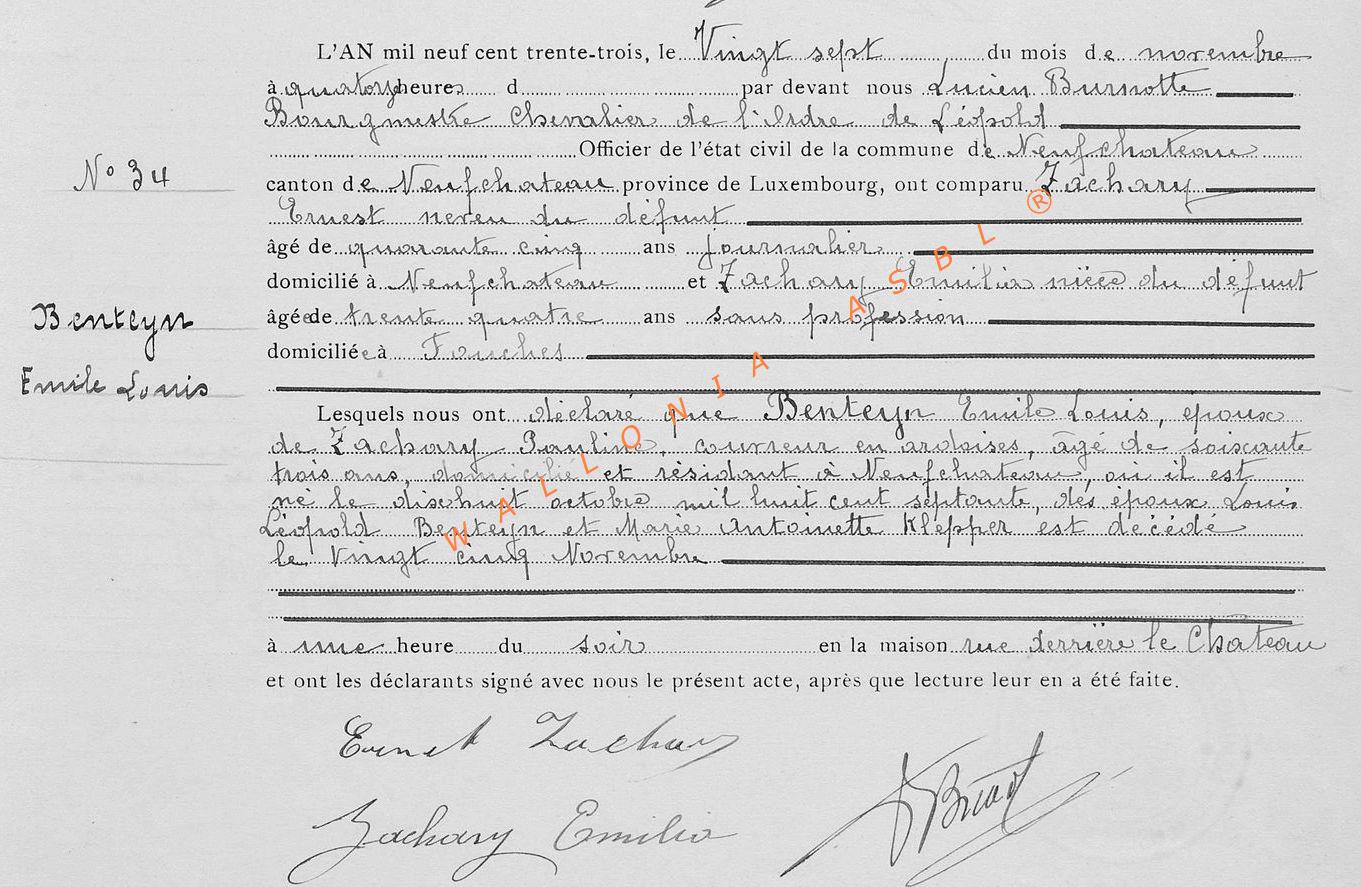 L'AN mil neuf cent trente-trois, le Vingt sept du mois de novembre
à quatorze heures d par devant nous Lucien Burnotte
Bourgmestre Chevalier de l'Ordre de Léopold
Officier de l'état civil de la commune de Neufchateau
N° 34
canton de Neufchateau province de Luxembourg, ont comparu Zachary
Ernest neveu du défunt
âgé de quarante cinq ans journalier
domicilié à Neufchateau et Zachary Emilia nièce du défunt
Benteyn
âgée de trente quatre ans sans profession
domiciliée à Fouches
Emile Louis
Lesquels nous ont déclaré que Benteyn Emile Louis, époux
de Zachary Pauline, couvreur en ardoises, âgé de soixante
trois ans, domicilié et résidant à Neufchateau, où il est
né le dixhuit octobre mil huit cent septante, des époux Louis
Léopold Benteyn et Marie Antoinette Klepper est décédé
le Vingt cinq Novembre
à une heure du soir en la maison rue derrière le Chateau
et ont les déclarants signé avec nous le présent acte, après que lecture leur en a été faite.
Ernest Zachary
Zachary Emilia
WALLONIA ASBL ®